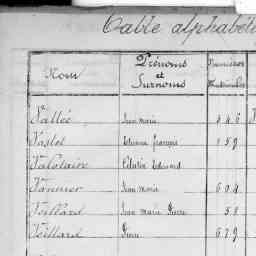 Table alphabéti
Nom
Prénoms et Surnoms
Numéros Matricules
Vallée Jean Marie 446
Vaslot Etienne François 159
Valotaire Célestin Edouard
Vannier Jean Marie 604
Veillard Jean Marie Pierre 51
Veillard Pierre 679